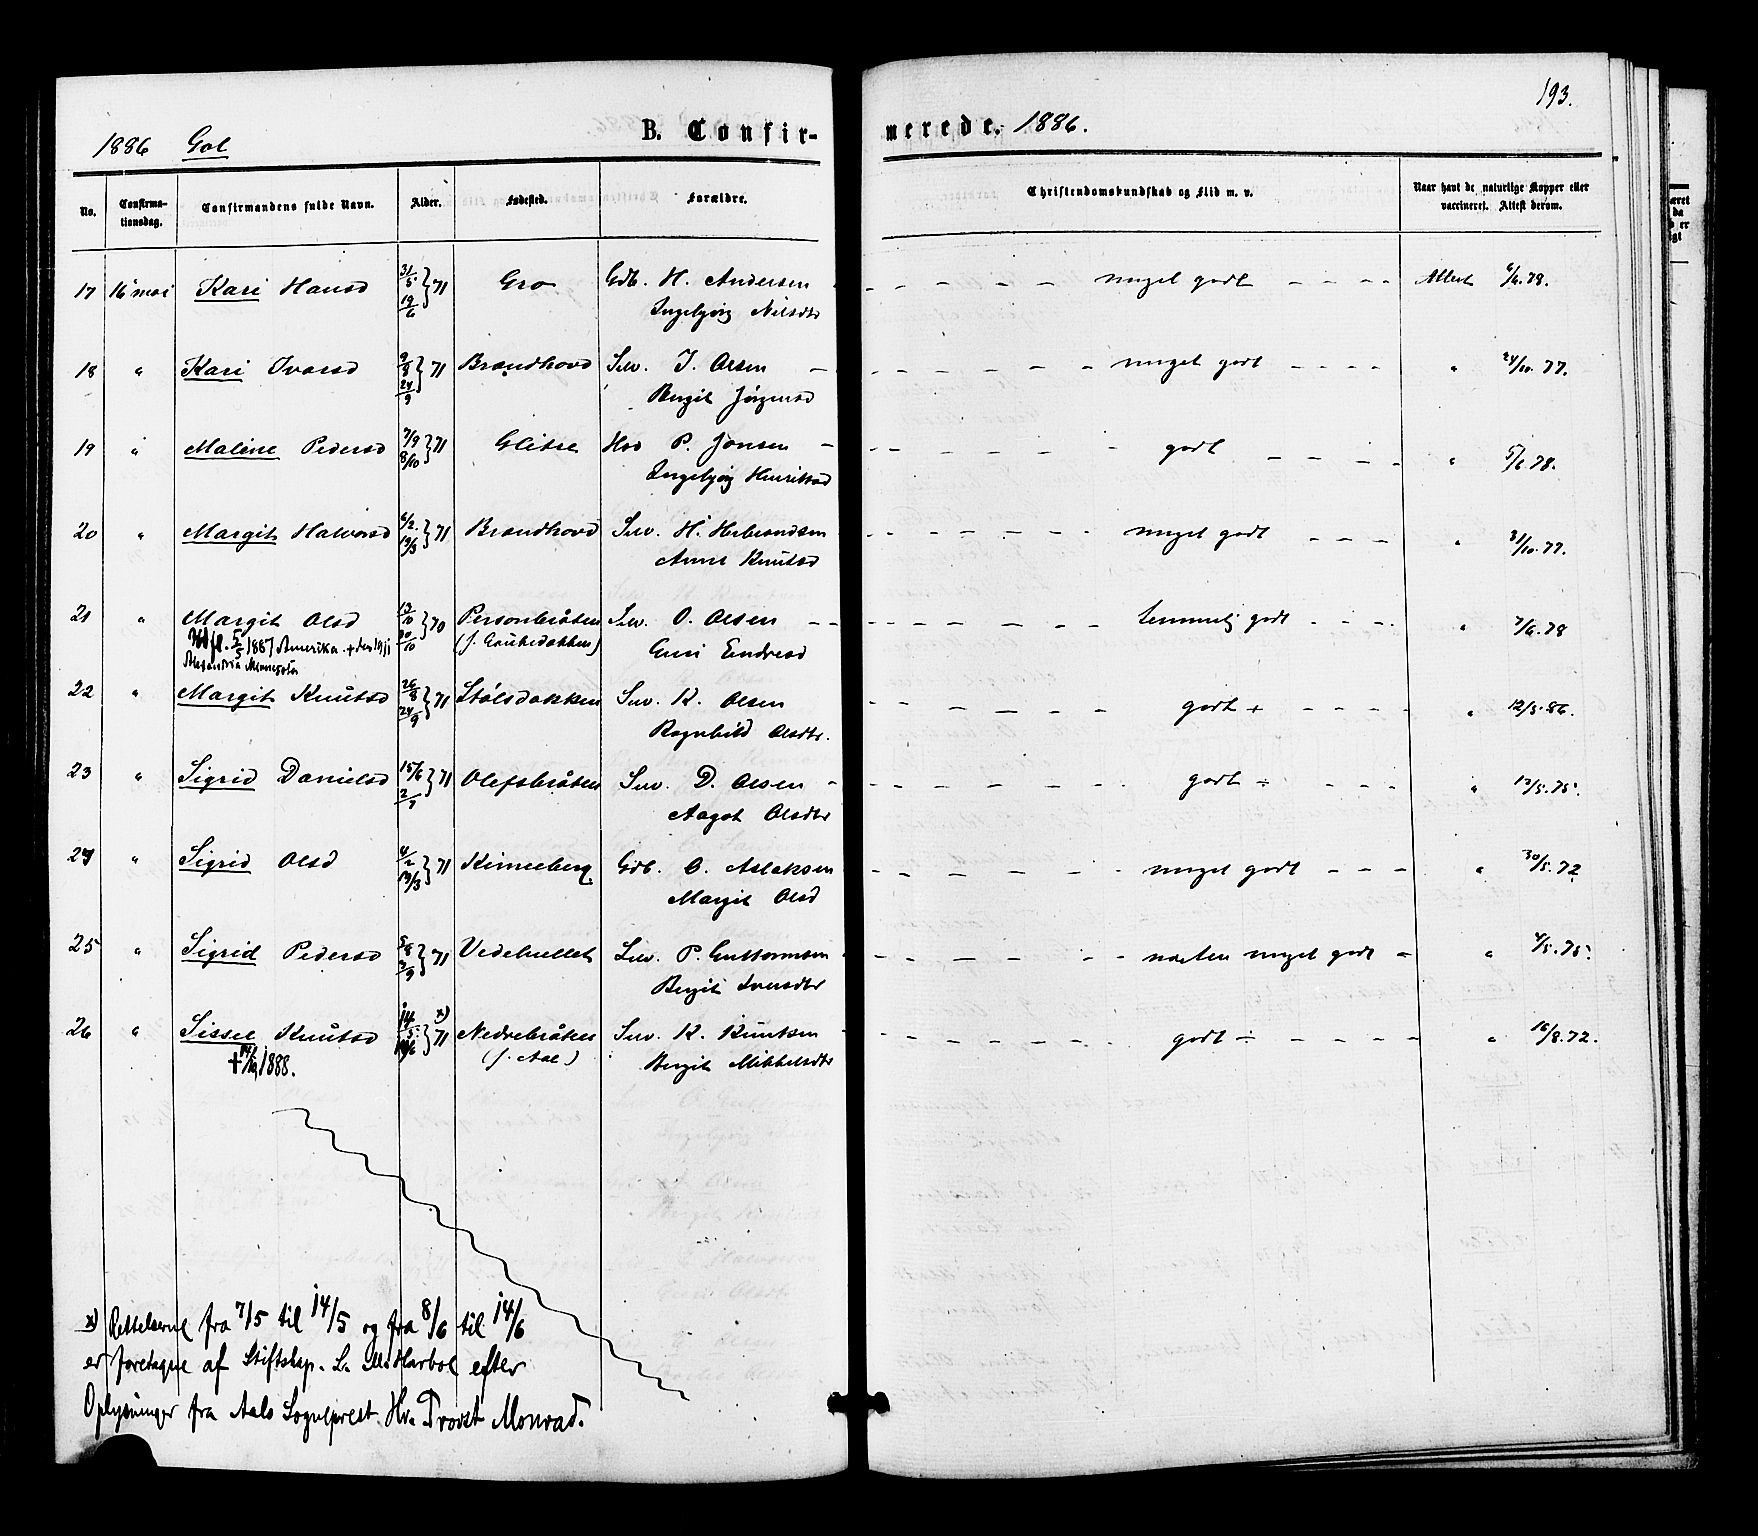 193.
1886 Gol B. Confirmerede. 1886.
No. Confirmationsdag. Confirmandens fulde Navn. Alder. Fødested. Forældre. Christendomskundskab og Flid m. v. Naar havt de naturlige Kopper eller vaccineret. Attest derom.
17 16 mai Kari Hansd 31/5 19/6 } 71 Gro Gdb. H. Andersen - - - - - - meget godt - - - - Attest 6/6.78.
Ingebjørg Nilsdtr
18 " Kari Ivarsd 9/8 24/9 } 71 Brandhovd Selv. I. Olsen - - - - - - meget godt - - - - " 24/10.77.
Birgit Jørgensd
19 " Maline Pedersd 7/9 8/10 } 71 Glitre Hos P. Jonsen - - - - - - godt - - - - " 5/6.78.
Ingebjørg Henriksd
20 " Margit Halvorsd 6/2. 19/3 } 71 Brandhovd Selv. H. Herbrandsen - - - - - - meget godt - - - " 31/10.77.
Anne Knutsd
21 " Margit Olsd 13/10 30/10 } 70 Personbråten Selv. O. Olsen - - - - - - - temmelig godt - - - " 7/6.78
5/5 1887 Amerika. + (f. )
Guri Endresd
Alexandria Minnesota
22 " Margit Knutsd 26/8 24/9 } 71 Stølsdokken Selv. K. Olsen - - - - - - godt + - - - - " 12/5.86.
Ragnhild Olsdtr.
23 " Sigrid Danielsd 15/6 2/7 } 71 Olefsbråten Selv. D. Olsen - - - - - - godt ÷ - - - " 12/5.75.
Aagot Olsdtr
24 " Sigrid Olsd 4/2 19/3 } 71 Kinneberg Gdb. O. Aslaksen - - - - - - meget godt - - - " 30/5.72
Margit Olsd
25 " Sigrid Pedersd 5/8 3/9 } 71 Vedehullet Selv. P. Guttormsen - - - - - - næsten meget godt - " 4/5.75.
Birgit Iversdtr
26 " Sissel Knutsd 14/5 14/6 } 71 x) Nedrebråten Selv. K. Knutsen - - - - - - godt ÷ - - - - " 16/8.72.
1888. (f. Aal) Birgit Mikkelsdtr
x) Rettelserne fra 7/5 til 14/5 og fra 8/6 til 14/6
er foretagne af Stiftskap. L. M. Harboe efter
Oplysninger fra Aals Sogneprest. Hr. Provst Monrad.